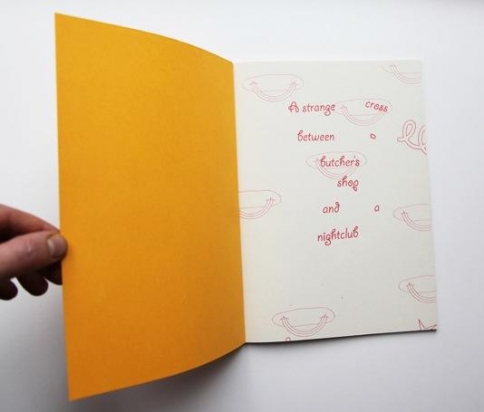 A strange cross
between a
butcher's
shop
and a
nightclub